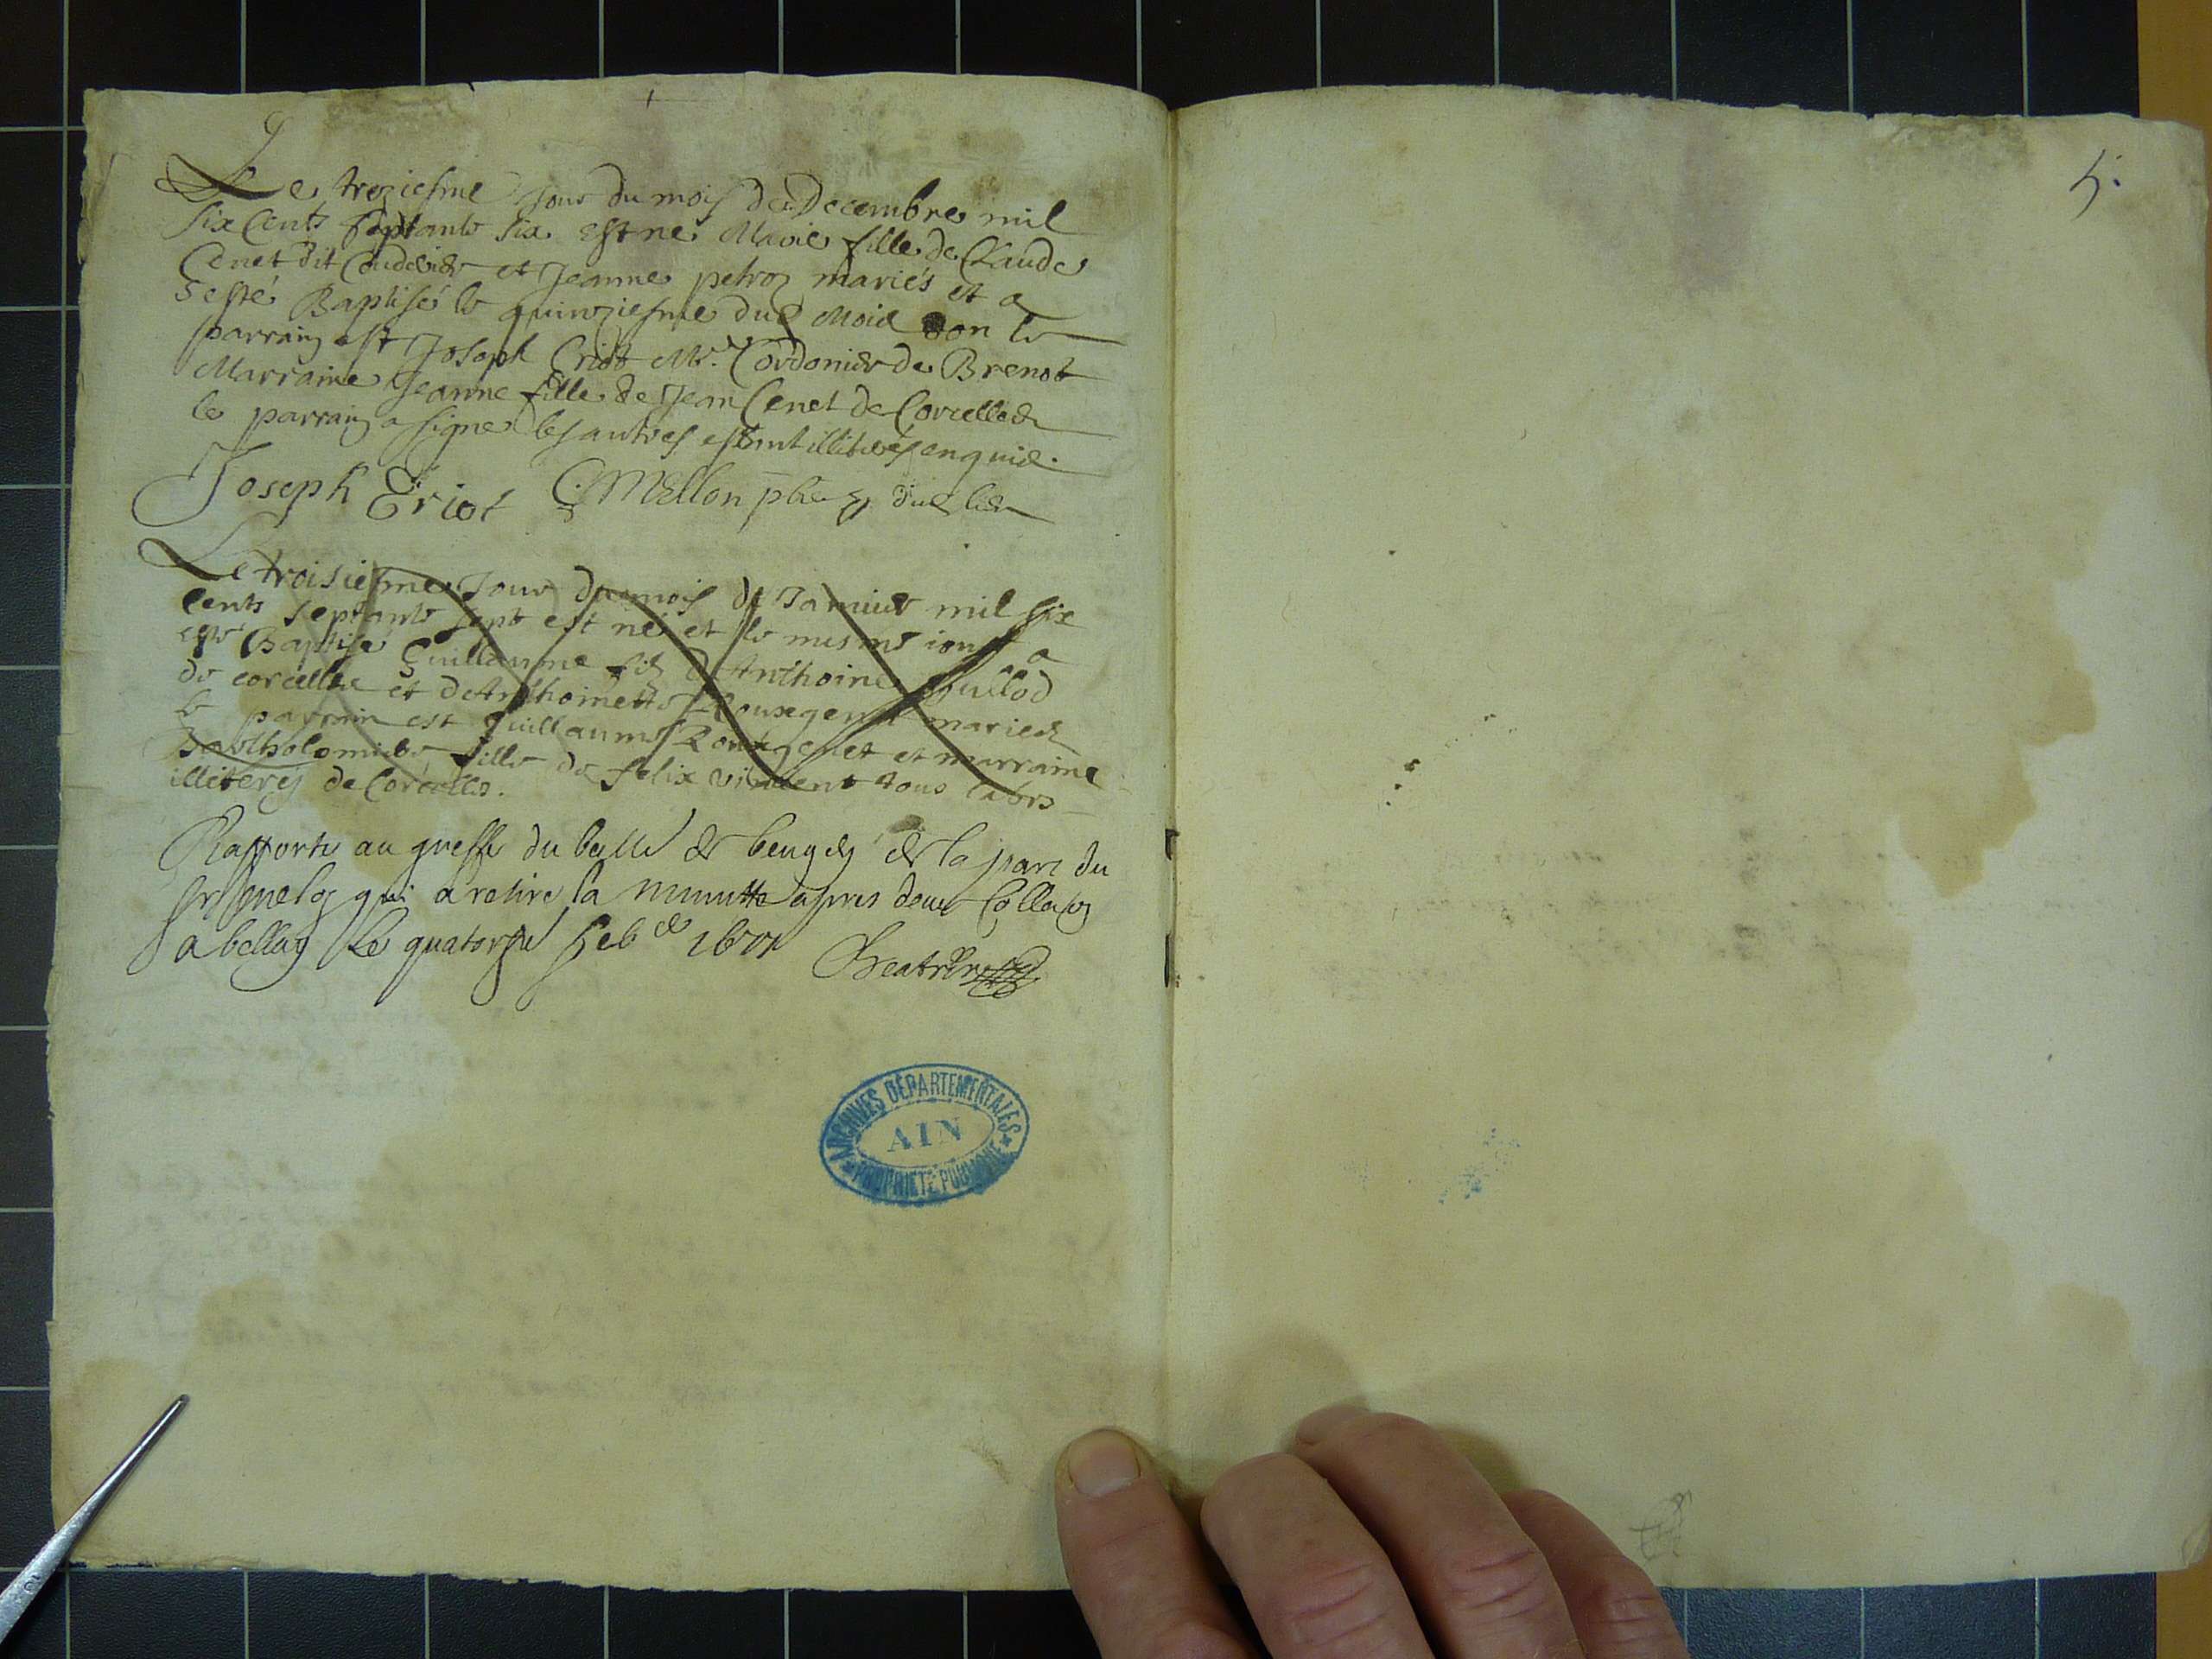 Le treziesme Jour du mois de Decembre mil
six Cents septante six est né Marie fille de Claude
Cenet dit et Jeanne petroz mariés et a
esté Baptisé le quinziesme dud Mois son le
parrain est Joseph Eriot Me. Cordonier de Brenot
Marraine Jeanne fille de Jean Cenet de Corcelles
le parrain a signé les autres estant illiterés enquis.
Joseph Eriot C. Mellon pbre dud lieu
Le troisiesme Jour du mois de Janvier mil six
cents septante sept est né et le mesme jour a
este Baptisé Guillaume filz d'Anthoine
de corcelles et de Anthoinette Rouxgenet mariés
le parrain est Guillaume Rouxgenet et marraine
Bartholomiere fille de felix tous
illiterés de Corcelles.
Rapporte au greffe du de beugey de la part du
Sr qui a retiré la minutte apres
a belley Le quatorze feb
5.
ARCHIVES DÉPARTEMENTALES
AIN
PROPRIÉTÉ PUBLIQUE